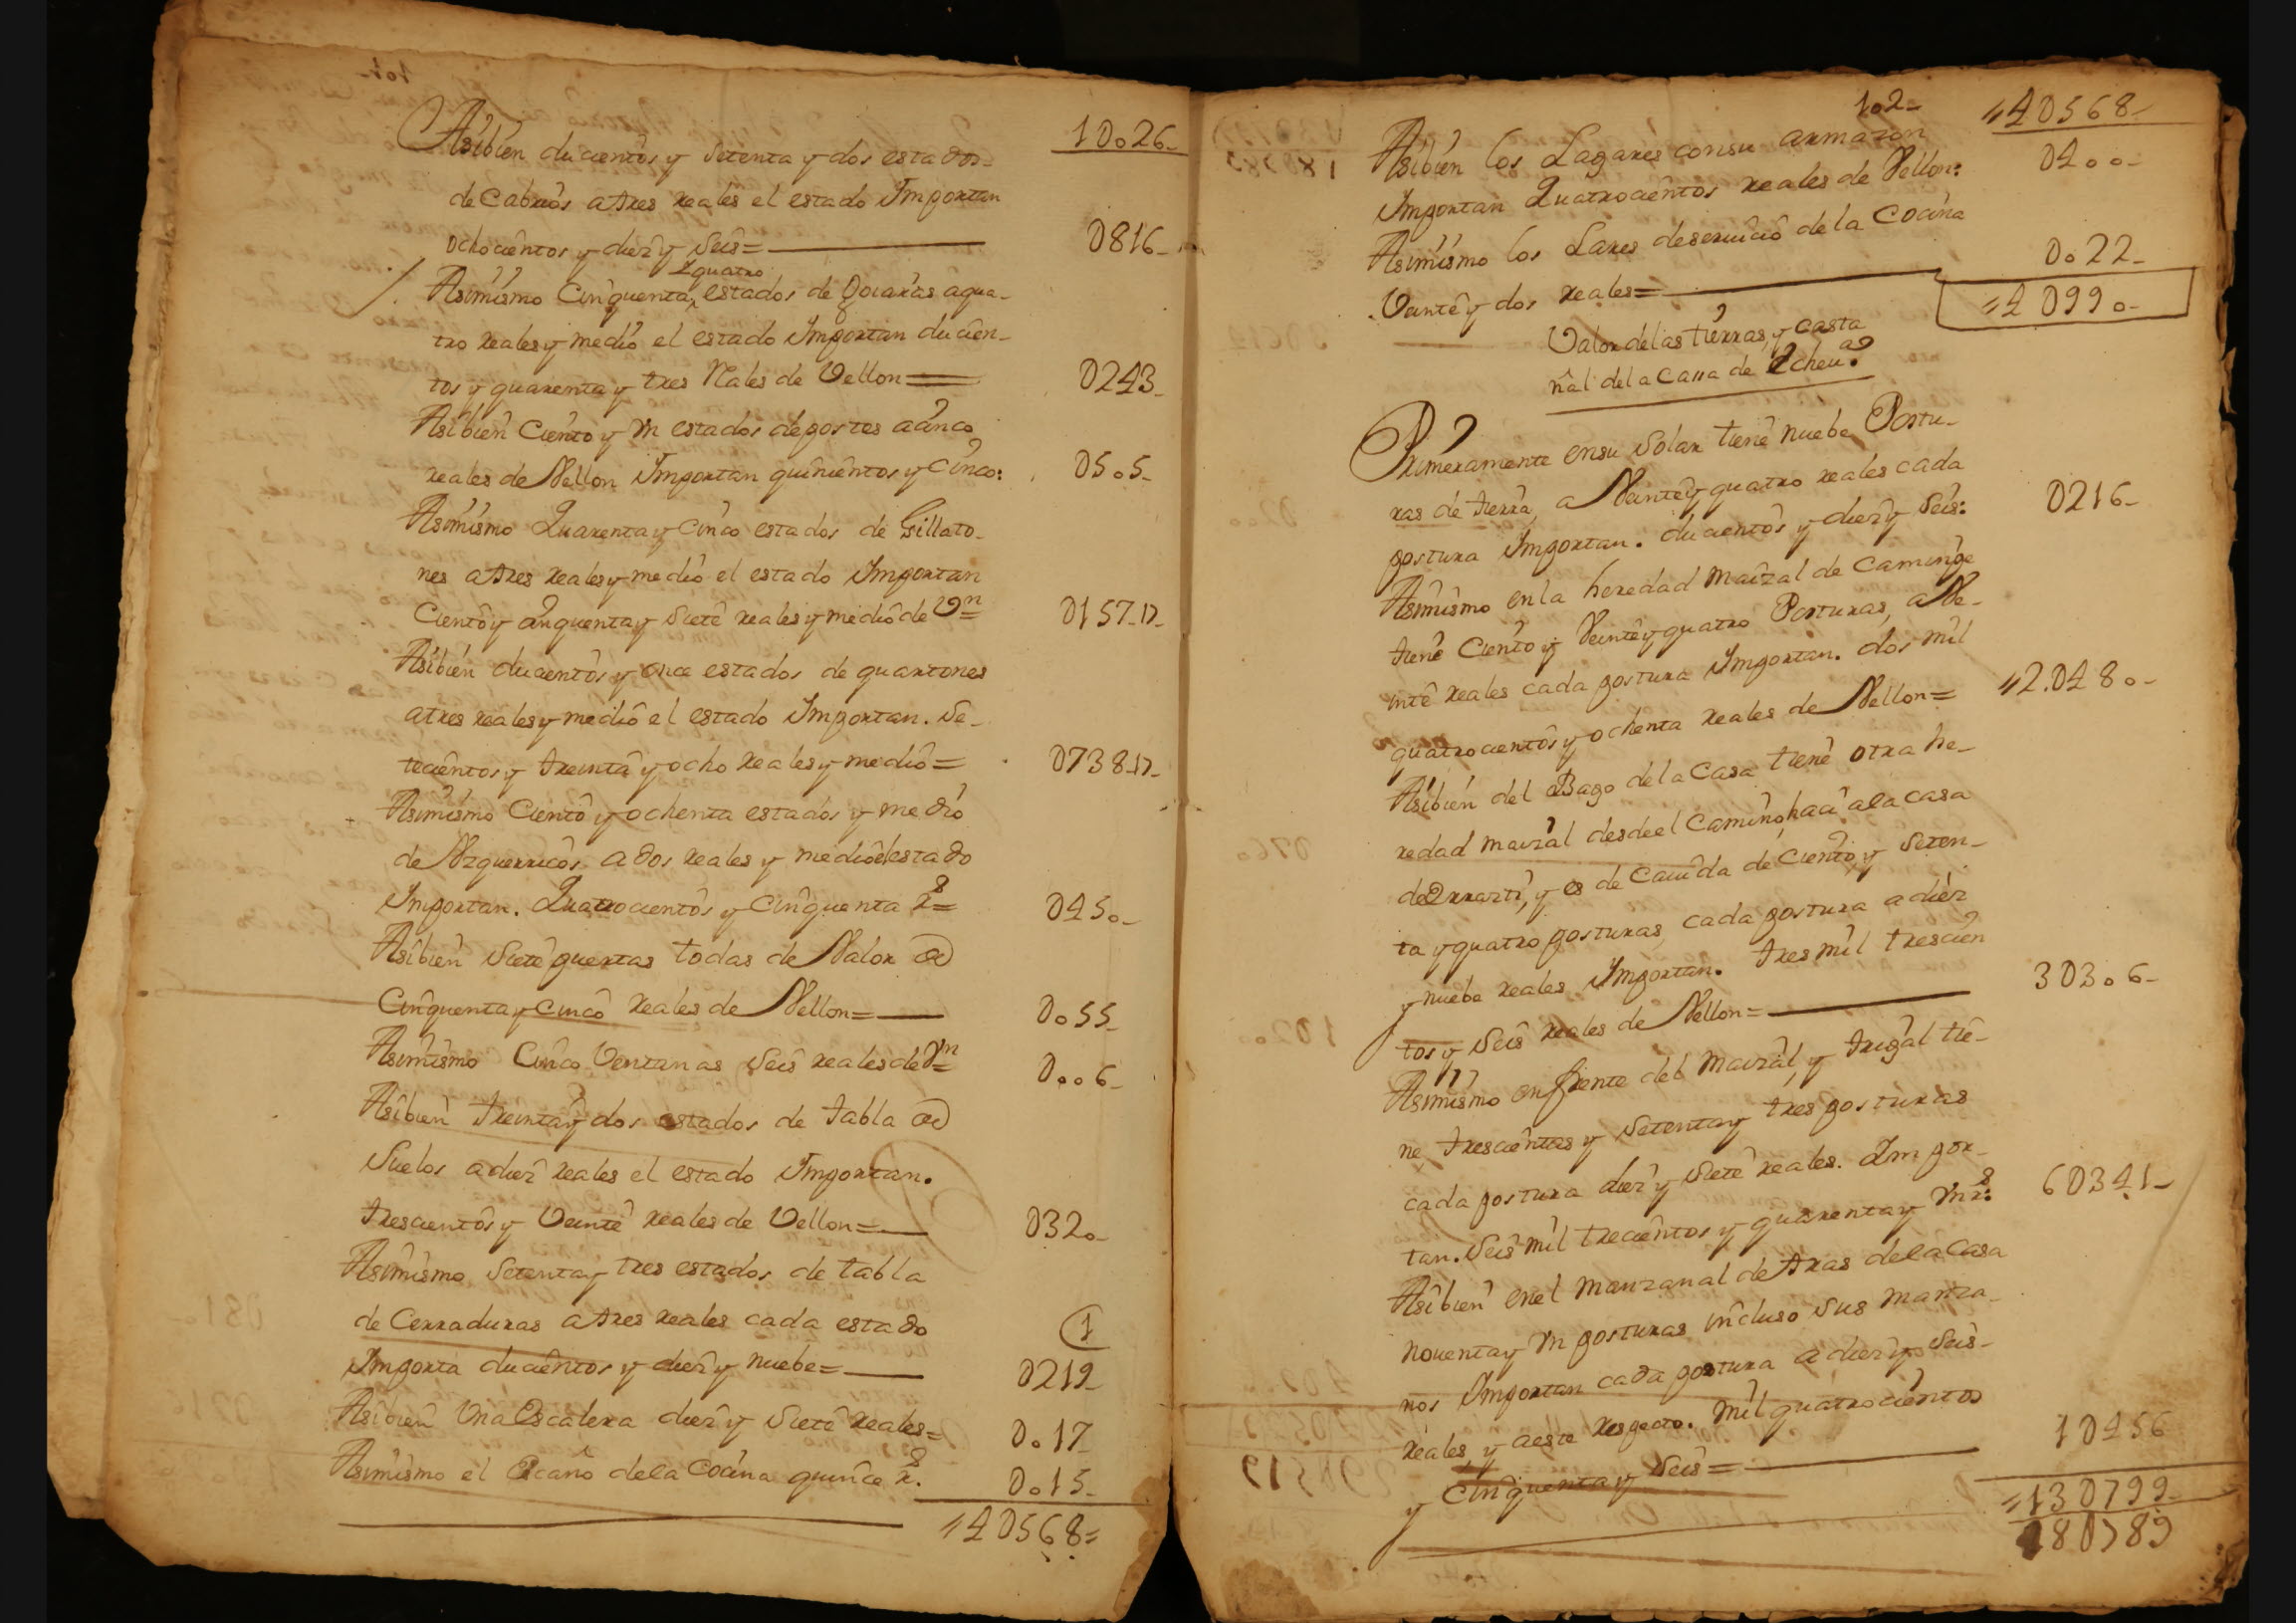 101-
10026-
Asibien ducientos y setenta y dos estados
de Cabrios a tres reales el estado Importan
ochocientos y diez y seis= 0816-
y quatro
Asimismo Cinquenta estados de Goiaras a qua-
tro reales y medio el estado Importan ducien-
tos y quarenta y tres Rales de Vellon= 0243-
Asibien Ciento y Un estados de postes a cinco
reales de Vellon Importan quinientos y Cinco: 0505-
Asimismo Quarenta y Cinco estados de Gillato-
nes a tres reales y medio el estado Importan
Ciento y cinquenta y siete reales y medio de Vn= 0157-17-
Asibien ducientos y once estados de quartones
a tres reales y medio el estado Importan. Se-
tecientos y treinta y ocho reales y medio= 0738-17-
Asimismo Ciento y ochenta estados y medio
de Vzguerricos a dos reales y medio el estado
Importan. Quatrocientos y Cinquenta rs= 0450-
Asibien Siete puertas todas de Valor de
Cinquenta y Cinco reales de Vellon= 0055-
Asimismo Cinco Ventanas Seis reales de Vn= 0006-
Asibien treinta y dos estados de tabla de
Suelos a diez reales el estado Importan.
trescientos y Veinte reales de Vellon= 0320-
Asimismo Setenta y tres estados de tabla
de Cerraduras a tres reales cada estado
1
Importa ducientos y diez y nuebe= 0219-
Asibien Una Escalera diez y Siete reales= 0017-
Asimismo el Escaño de la Cocina quince rs. 0015-
40568=
102-
40568-
Asibien los Lagares con su armazon
Importan Quatrocientos reales de Vellon: 0400-
Asimismo los Lares de seruicio de la Cocina
Veinte y dos reales= 0022-
40990-
Valor de las tierras, y casta
ñal de la Casa de Echeua.
Primeramente en su Solar tiene nuebe Postu-
ras de tierra, a Veinte y quatro reales cada
postura Importan. ducientos y diez y Seis: 0216-
Asimismo en la heredad maizal de Caminpe
tiene Ciento y Veinte y quatro Posturas, a Ve-
inte reales cada postura Importan. dos mil
quatrocientos y ochenta reales de Vellon= 2.0480-
Asibien del Bago de la Casa tiene otra he-
redad maizal desde el Camino, haci a la casa
de Errazti, y es de Cauida de Ciento, y Seten-
ta y quatro posturas, cada postura a diez
y nuebe reales Importan. tres mil trescien
tos y Seis reales de Vellon= 30306-
Asimismo enfrente del maizal, y trigal tie-
ne trescientas y Setenta y tres posturas
cada postura diez y Siete reales. Impor-
tan. Seis mil trecientos y quarenta y Un rs: 60341-
Asibien en el manzanal de tras de la Casa
nouenta y Un posturas incluso Sus manza-
nos Importan cada postura a diez y Seis-
reales, y a este respecto. mil quatrocientos
y Cinquenta y Seis= 10456
130799-
180789